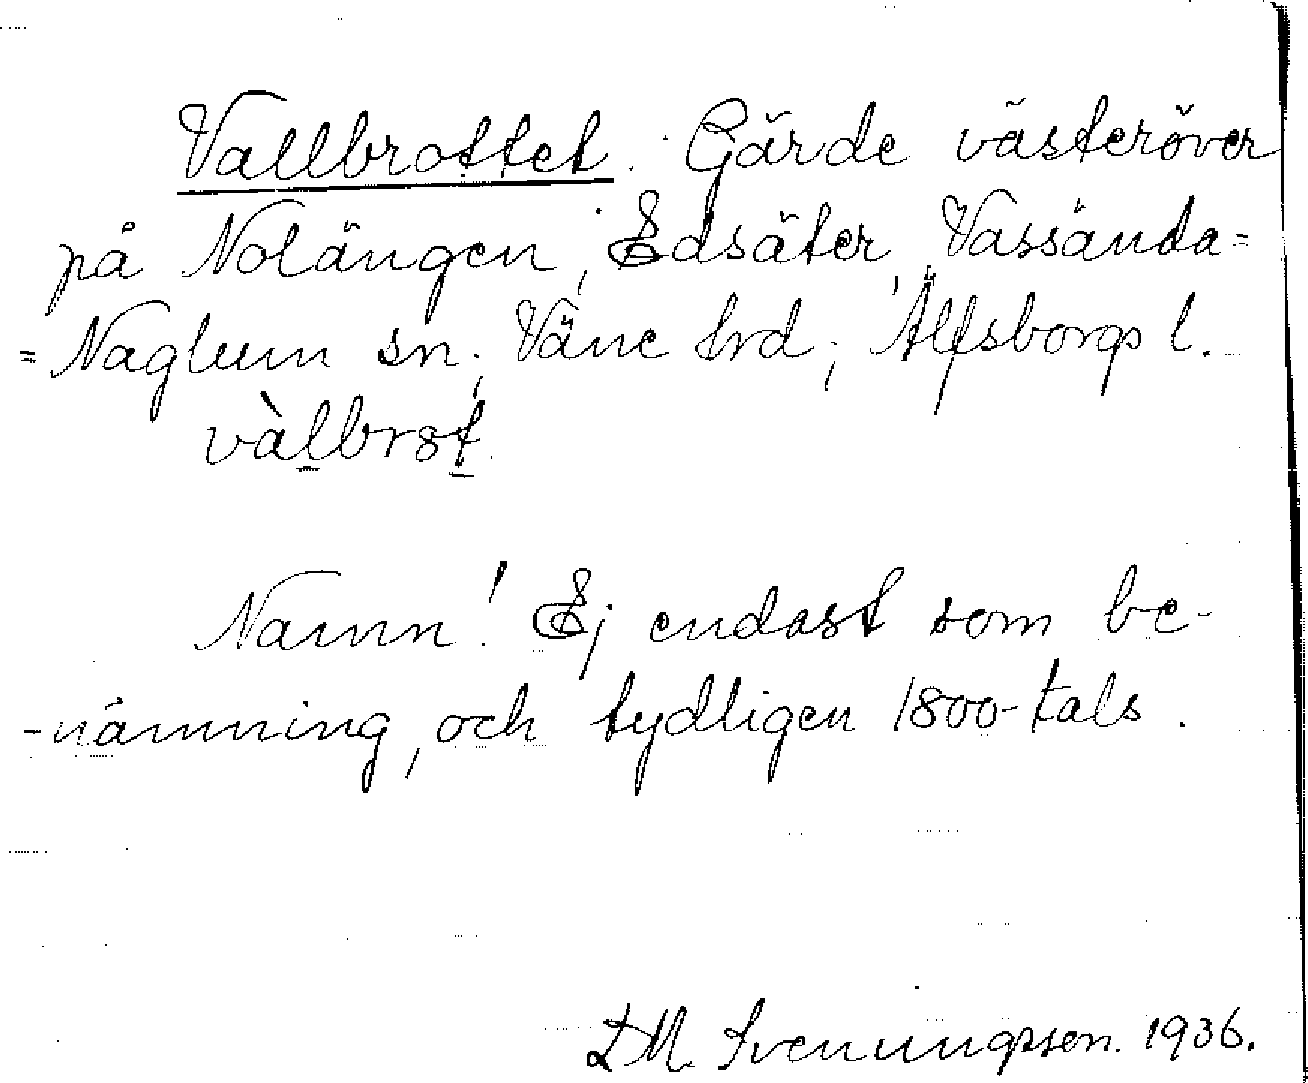 Vallbrottet. Gärde västeröver
på Nolängen, Edsäter, Vassända=
=Naglum sn; Väne hrd; Älfsborgs l.
vàlbrɜt.
Namn! Ej endast som be-
-nämning, och tydligen 1800-tals.
D.M. Svenungsson. 1936.